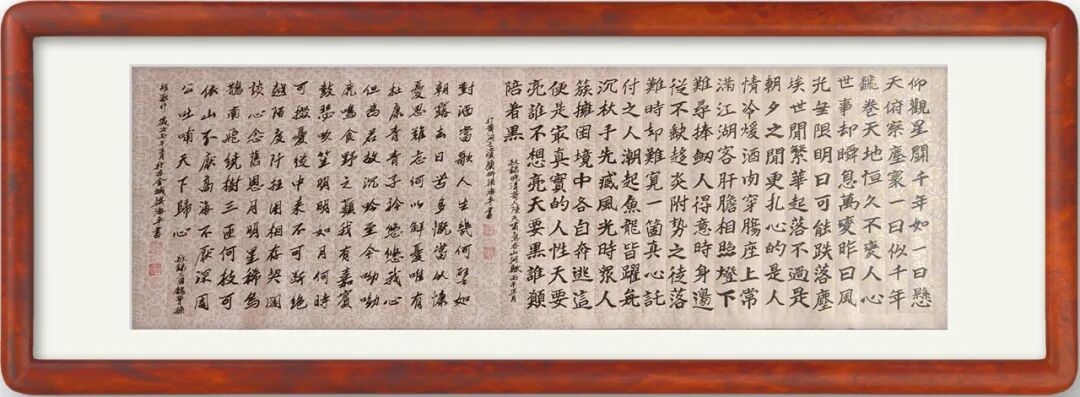 仰觀星闕千年如一日懸
天俯察塵寰一日似千年
卷天地恒久不變人心
世事却瞬息萬變昨日風
光無限明日可能跌落塵
埃世間繁華起落不過是
朝夕之間更扎心的是人
情冷暖酒肉穿腸座上常
滿江湖客肝膽相照燈下
難尋捧劍人得意時身邊
從不缺趨炎附勢之徒落
難時却難覓一箇真心託
付之人潮起魚龍皆躍
沉秋手先臧風光時衆人
簇擁困境中各自奔逃這
便是最真實的人性天要
亮誰不想亮天要黑誰願
陪者黑
對酒當歌人生幾何譬如
朝露去日苦多慨當以慷
憂思難忘何以解憂唯有
杜康青青子衿悠悠我心
但為君故沉吟至今呦呦
鹿鳴食野之蘋我有嘉賓
鼓瑟吹笙明明如月何時
可掇憂從中來不可斷絕
越陌度阡枉用相存契闊
談心念舊恩月明星稀烏
鵲南飛繞樹三匝何枝可
依山不厭高海不厭深周
公吐哺天下歸心